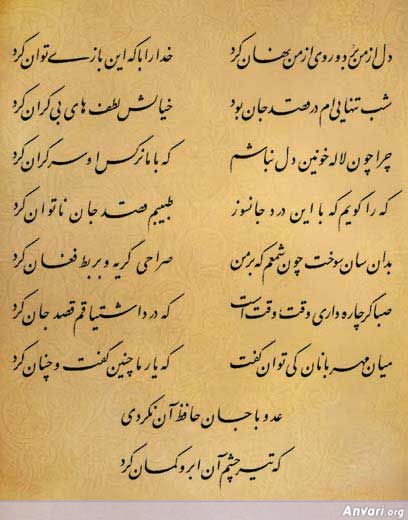 دل از من برد و روی از من نهان کرد خدا را با که این بازی توان کرد
شب تنهایی‌ام در قصد جان بود خیالش لطف های بی کران کرد
چرا چون لاله خونین دل نباشم که با ما نرگس او سر گران کرد
که را گویم که با این درد جانسوز طبیبم قصد جان ناتوان کرد
بدان سان سوخت چون شمعم که بر من صراحی گریه و بربط فغان کرد
صبا گر چاره داری وقت، وقت است که درد اشتیاقم قصد جان کرد
میان مهربانان کی توان گفت که یار ما چنین گفت و چنان کرد
عدو با جان حافظ آن نکردی
که تیر چشم آن ابرو کمان کرد
Anvari.org